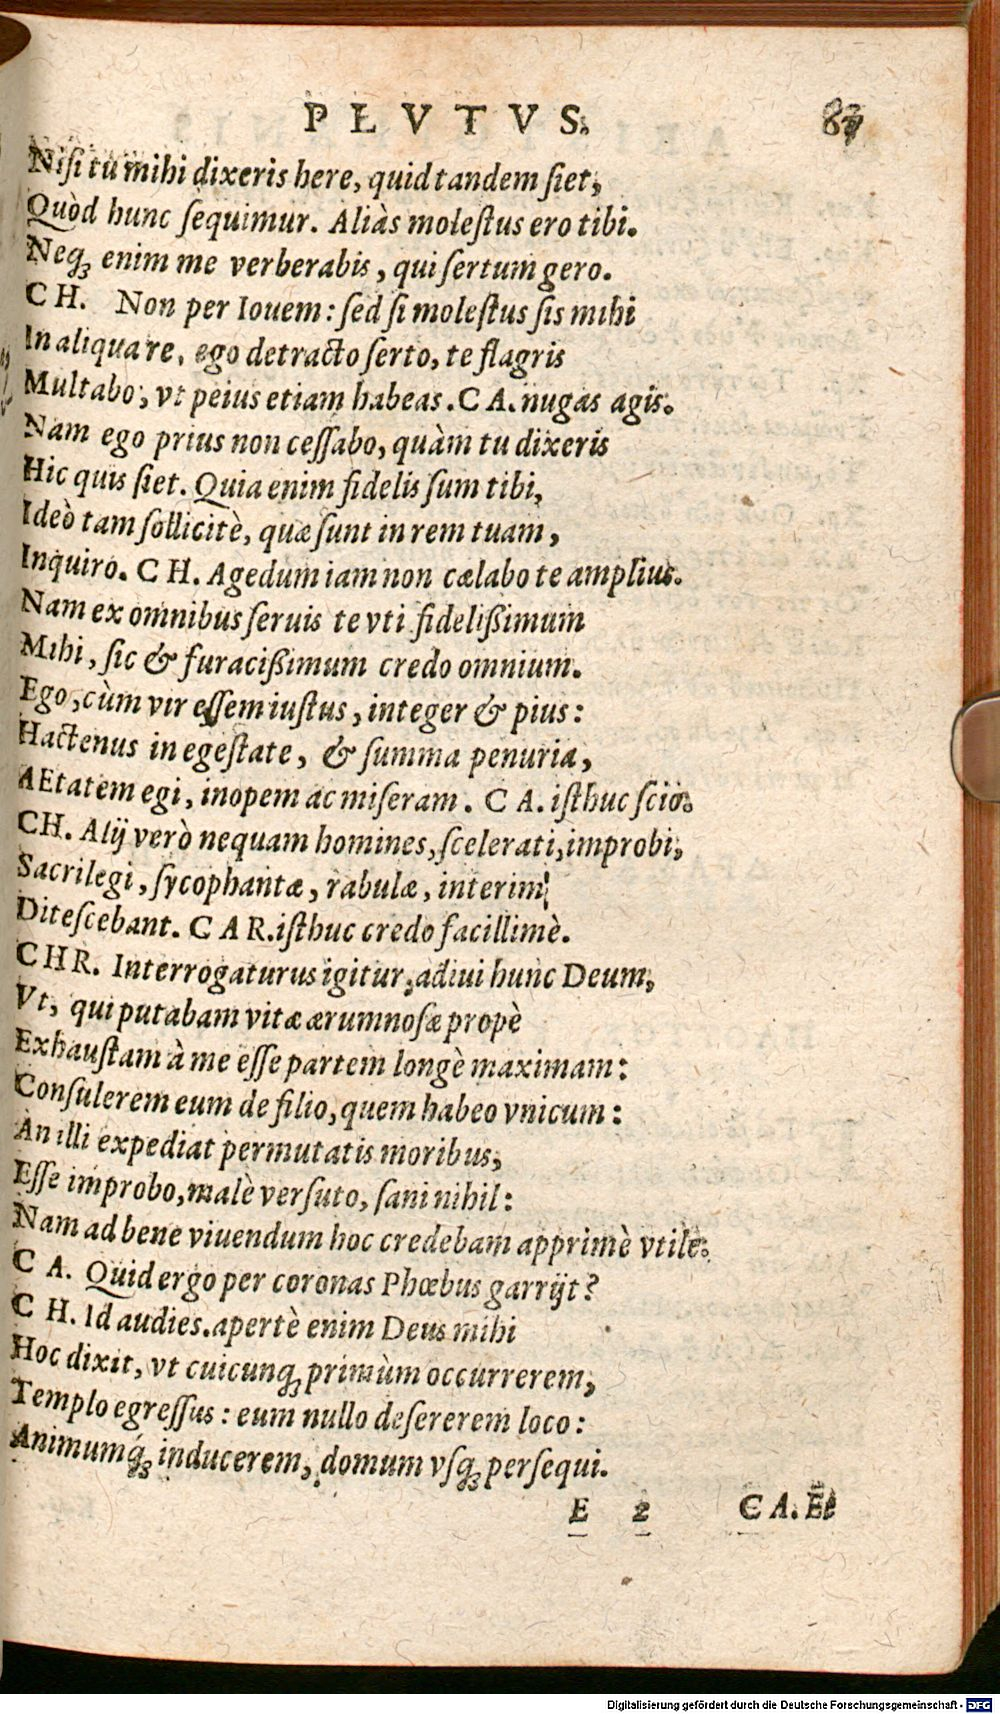 PLVTVS.
Niſi tu mihi dixeris here, quid tandem ſiet,
Quòd hunc ſequimur. Aliàs moleſtus ero tibi.
Neq; enim me verberabis, qui ſertum gero.
CH. Non per Iouem: ſed ſi moleſtus ſis mihi
In aliqua re, ego detracto ſerto, te flagris
Multabo, vt peius etiam habeas. CA. nugas agis.
Nam ego prius non ceſſabo, quàm tu dixeris
Hic quis ſiet. Quia enim fidelis ſum tibi,
Ideò tam ſollicitè, quæ ſunt in rem tuam,
Inquiro. CH. Agedum iam non cælabo te amplius.
Nam ex omnibus ſeruis te vti fidelißimum
Mihi, ſic & furacißimum credo omnium.
Ego, cùm vir eſſem iuſtus, integer & pius:
Hactenus in egeſtate, & ſumma penuria,
AEtatem egi, inopem ac miſeram. CA. iſthuc ſcio.
CH. Alij verò nequam homines, ſcelerati, improbi,
Sacrilegi, ſycophantæ, rabulæ, interim
Diteſcebant. CAR. iſthuc credo facillimè.
CHR. Interrogaturus igitur, adiui hunc Deum,
Vt, qui putabam vitæ ærumnoſæ propè
Exhauſtam à me eſſe partem longè maximam:
Conſulerem eum de filio, quem habeo vnicum:
An illi expediat permutatis moribus,
Eſſe improbo, malè verſuto, ſani nihil:
Nam ad bene viuendum hoc credebam apprimè vtile.
CA. Quid ergo per coronas Phœbus garrijt?
CH. Id audies. apertè enim Deus mihi
Hoc dixit, vt cuicunq; primùm occurrerem,
Templo egreſſus: eum nullo deſererem loco:
Animumq́; inducerem, domum vſq; perſequi.
E 2 CA. Et
Digitalisierung gefördert durch die Deutsche Forschungsgemeinschaft - DFG